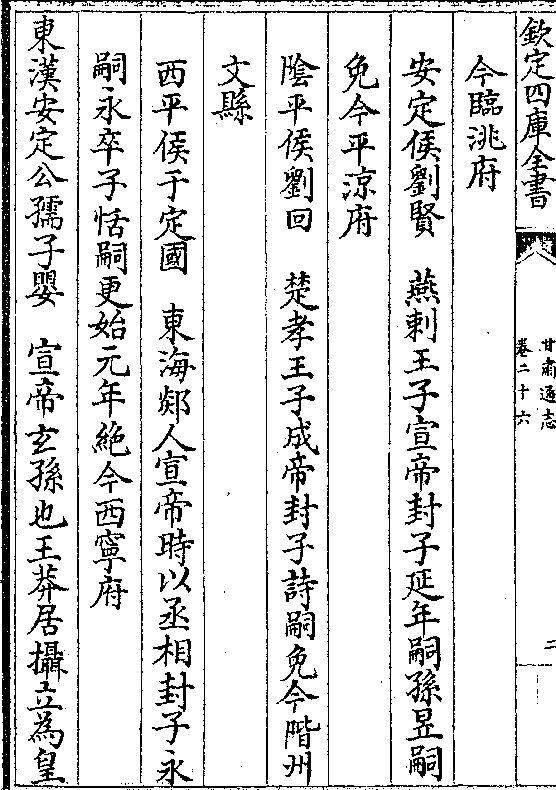 欽定四庫全書
甘肅通志
卷二十六
二
今臨洮府
安定侯劉賢 燕剌王子宣帝封子延年嗣孫昱嗣
免今平涼府
陰平侯劉回 楚孝王子成帝封子詩嗣免今階州
文縣
西平侯于定國 東海郯人宣帝時以丞相封子永
嗣永卒子恬嗣更始元年絶今西寧府
東漢安定公孺子嬰 宣帝玄孫也王莽居攝立為皇